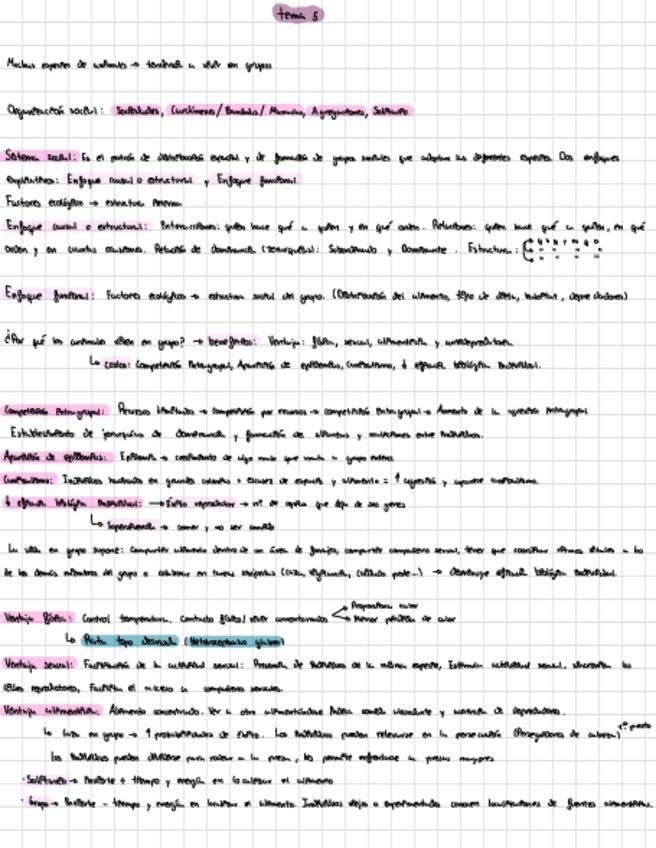 tema 5
Muchas especies de animales → tendencia a vivir en grupos
Organización social: Sociedades, Cardúmenes/Bandadas/Manadas, Agregaciones, Solitario
Sistema social: Es el patrón de distribución espacial y de formación de grupos sociales que adoptan las diferentes especies. Dos enfoques
explicativos: Enfoque causal o estructural y Enfoque funcional
Factores ecológicos → estructura interna
Enfoque causal o estructural: Interacciones: quién hace qué a quién y en qué orden. Relaciones: quién hace qué a quién, en qué
orden y en cuántas ocasiones. Relación de dominancia (jerarquías): Subordinado y Dominante. Estructura:
Enfoque funcional: Factores ecológicos → estructura social del grupo. (Distribución del alimento, tipo de dieta, hábitat, depredadores)
¿Por qué los animales viven en grupo? → beneficios: Ventaja: física, sexual, alimenticia y antidepredatoria
↳ costes: Competición intragrupal, Aparición de epidemias, Canibalismo, ↓ eficacia biológica individual.
Competición intragrupal: Recursos limitados → competición por recursos → competición intragrupal → Aumento de la agresión intragrupal
Establecimiento de jerarquías de dominancia y formación de alianzas y coaliciones entre individuos.
Aparición de epidemias: Epidemia → crecimiento de algo malo que mata a grupo entero
Canibalismo: Individuos hacinados en grandes colonias + escasez de espacio y alimento = ↑ agresión y aparece canibalismo.
↓ eficacia biológica individual: → Éxito reproductor → nº de copias que deja de sus genes
↳ Supervivencia → comer y no ser comido
La vida en grupo supone: Compartir alimento dentro de un área de forrajeo, compartir compañero sexual, tener que coordinar ritmos vitales a los
de los demás miembros del grupo o colaborar en tareas conjuntas (caza, vigilancia, cuidado prole...) → disminuye eficacia biológica individual.
Ventaja física: Control temperatura. Contacto físico/vivir amontonados
Proporciona calor
Menor pérdida de calor
↳ Rata topo desnuda (Heterocephalus glaber)
Ventaja sexual: Facilitación de la actividad sexual: Presencia de individuos de la misma especie, Estimula actividad sexual, sincroniza los
ciclos reproductores, Facilita el acceso a compañeros sexuales.
Ventaja alimenticia: Alimento concentrado. Ver a otro alimentándose indica comida abundante y ausencia de depredadores.
↳ Caza en grupo → ↑ probabilidades de éxito. Los individuos pueden relevarse en la persecución
los individuos pueden dividirse para rodear a la presa, les permite enfrentarse a presas mayores
· Solitario → invierte + tiempo y energía en localizar el alimento
· Grupo → invierte - tiempo y energía en localizar el alimento. Individuos viejos o experimentados conocen localizaciones de fuentes alimenticias.